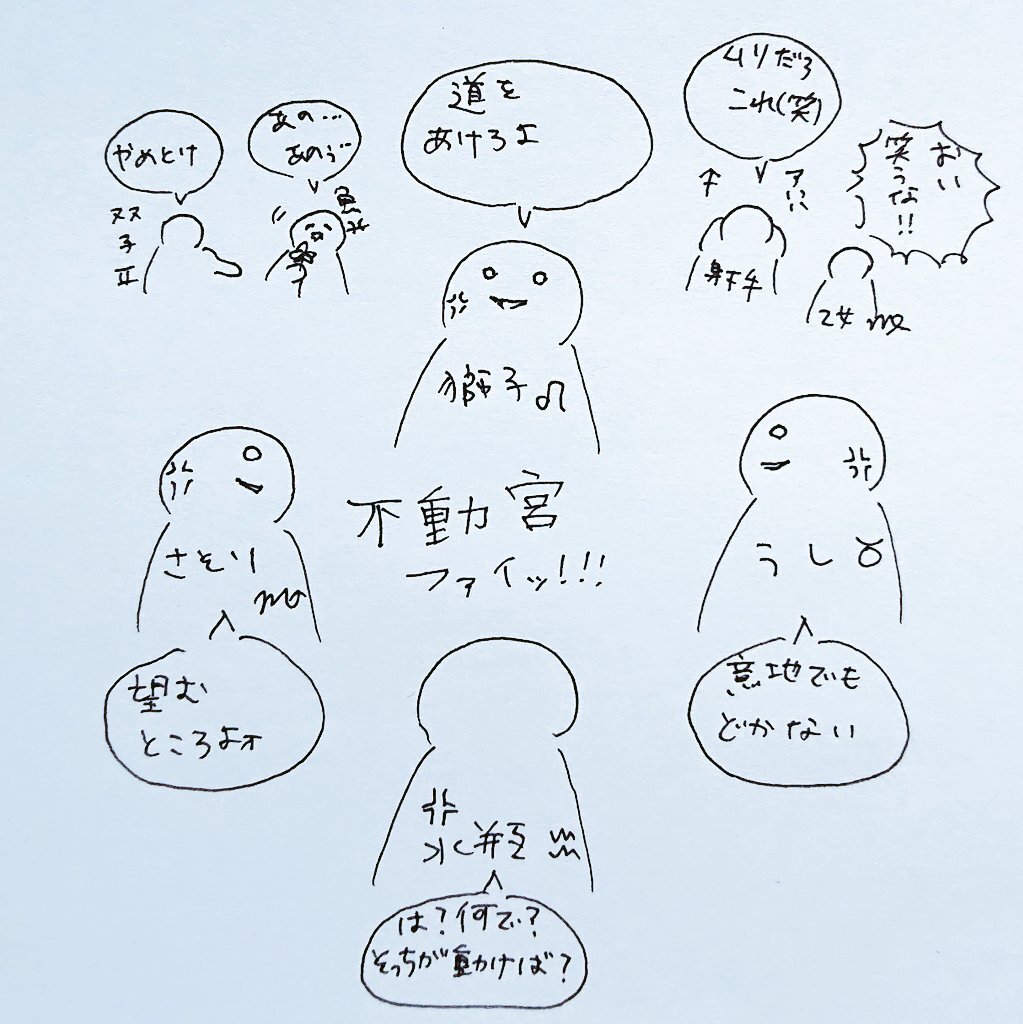 やめとけ
双
子
♊
あの…
あのぅ…
魚
♓
道を
あけろよ
獅子♌
ムリだろ
これ(笑)
射手
おい
笑うな!!
乙女♍
さそり
♏
望む
ところよォ
不動宮
ファイッ!!!
うし♉
意地でも
どかない
水瓶♒
は?何で?
そっちが動けば?